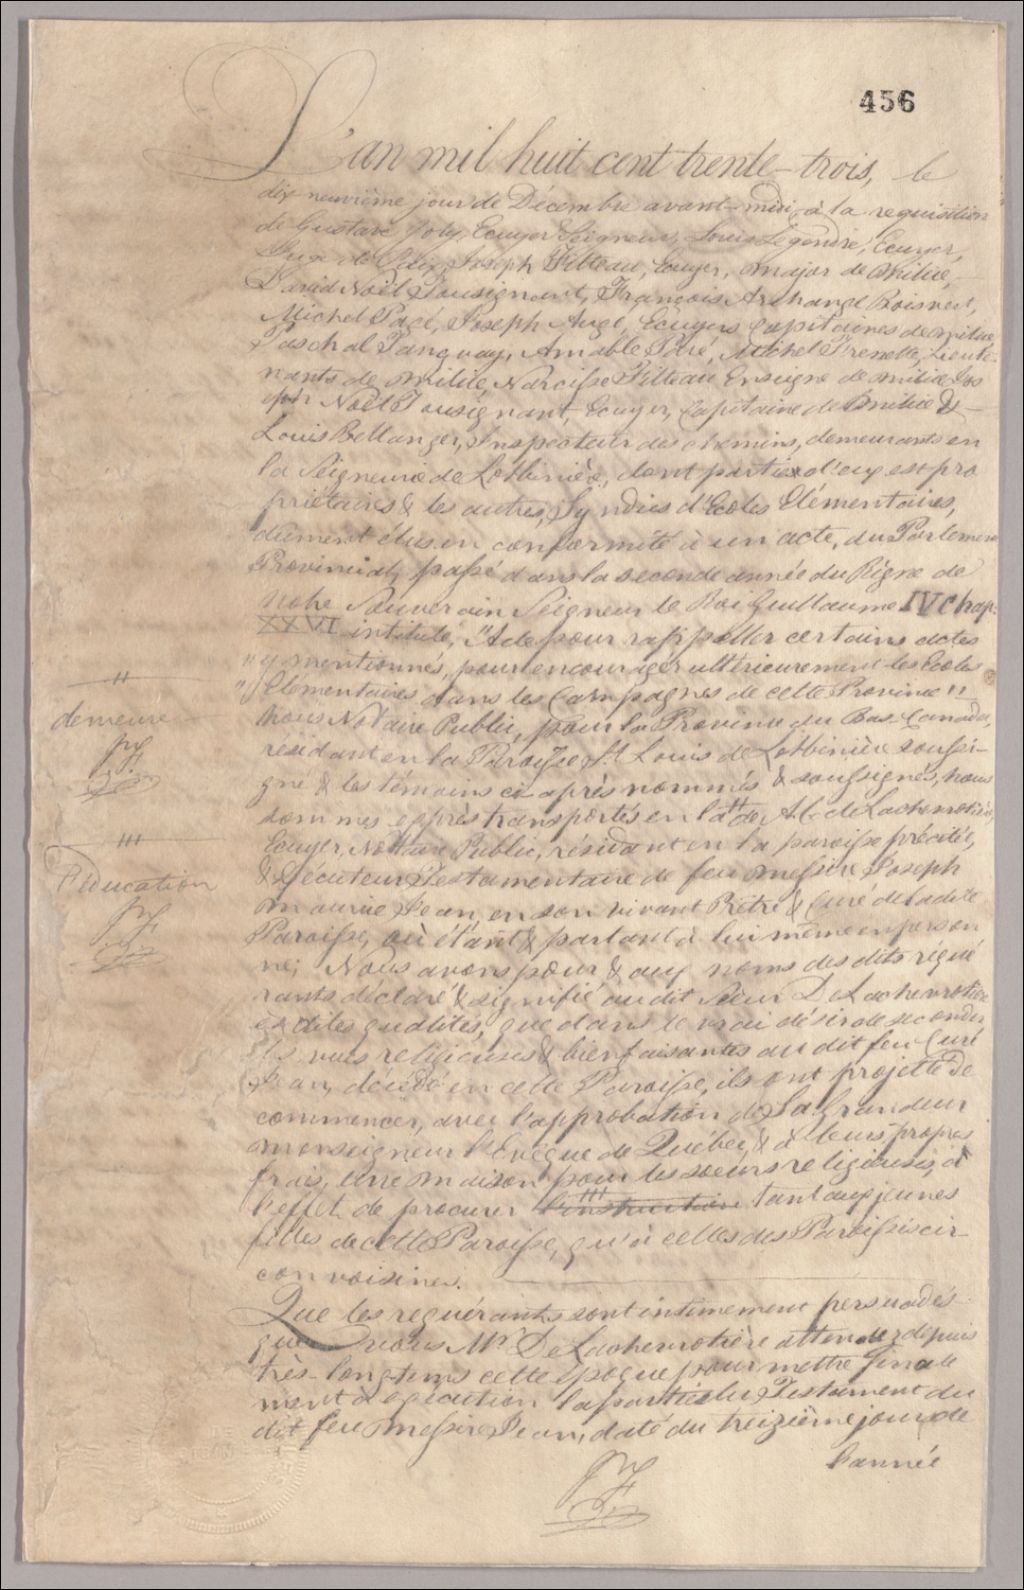 456
L'an mil huit cent trente-trois, le
dix neuvième jour de Décembre avant-midi, à la requisition
de Gustave Joly, Ecuyer Seigneur, Louis Legendre, Ecuyer,
Juge de Paix, Joseph Filteau, Ecuyer, Major de Milice,
David Noël Tousignant, François Archange Boisvert,
Michel Pagé, Joseph Augé, Ecuyers Capitaines de milice
Paschal Tanguay, Amable Paré, Michel Frenette, Lieute-
nants de Milice, Narcisse Filteau Enseigne de milice Jos
eph Noël Tousignant, Ecuyer, Capitaine de Milice &
Louis Bellanger, Inspecteur des chemins, demeurants en
la Seigneurie de Lotbinière, dont partie d'eux est pro
priétaires & les autres, Syndics d'Ecoles Elémentaires,
dûement élus en conformité à un acte, du Parlement
Provincial, passé dans la seconde année du Règne de
notre Souverain Seigneur le Roi Guillaume IV chap:
XXVI intitulé, "Acte pour rappeller certains actes
" y mentionnés, pour encourager ultérieurement les Ecoles
" Elémentaires dans les Campagnes de cette Province"
Nous Notaire Public, pour la Province du Bas-Canada,
résidant en la Paroisse St. Louis de Lotbinière soussi-
gné & les témoins ci-après nommés & soussignés, nous
sommes exprès transportés en la # de A. C. de Lachevrotière,
Ecuyer, Nottaire Public, résidant en la paroisse précitée,
& Exécuteur Testamentaire de feu Messire Joseph
Maurice Jean, en son vivant Prêtre & Curé de ladite
Paroisse, où étant & parlant à lui même en person
ne; Nous avons pour & aux noms des dits réqué
rants déclaré & signifié au dit Sieur De Lachevrotière
ès dites qualités, que dans le vrai désir de seconder
les vues religieuses & bienfaisantes du dit feu Curé
Jean, décédé en cette Paroisse, ils ont projetté de
commencer, avec l'approbation de Sa Grandeur
Monseigneur l'Evêque de Québec, & à leurs propres
frais, Une Maison pour les soeurs religieuses, à
l'effet de procurer l'instruction ### tant aux jeunes
filles de cette Paroisse, qu'à celles des Paroisses cir-
convoisines.
Que les requérants sont intimement persuadés
que vous Mr. De Lachevrotière attendez depuis
très-longtems cette époque pour mettre finale
ment à exécution la partie du Testament du
dit feu Messire Jean, daté du treizième jour de
l'année
#
demeure
###
l'éducation